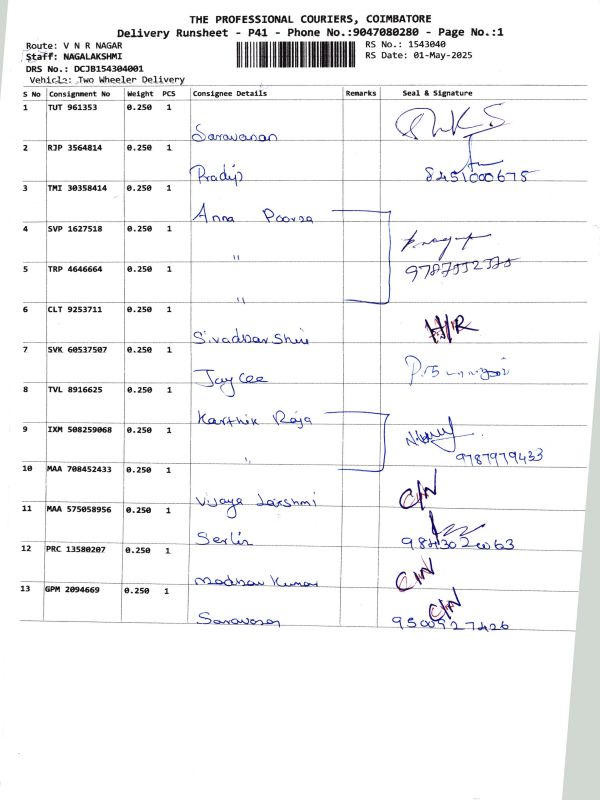 THE PROFESSIONAL COURIERS, COIMBATORE
Delivery Runsheet - P41 - Phone No.:9047080280 - Page No.:1
Route: V N R NAGAR
RS No.: 1543040
Staff: NAGALAKSHMI
RS Date: 01-May-2025
DRS No.: DCJB154304001
Vehicle: Two Wheeler Delivery
S No Consignment No Weight PCS Consignee Details Remarks Seal & Signature
1 TUT 961353 0.250 1
Saravanan
2 RJP 3564814 0.250 1
Pradip 8451000675
3 TMI 30358414 0.250 1
Anna Poorna
4 SVP 1627518 0.250 1
"
5 TRP 4646664 0.250 1
"
6 CLT 9253711 0.250 1 H/R
Sivadharshini
7 SVK 60537507 0.250 1
Jay Cee
8 TVL 8916625 0.250 1
Karthik Raja
9 IXM 508259068 0.250 1
" 9787979433
10 MAA 708452433 0.250 1 C/N
Vijaya Lakshmi
11 MAA 575058956 0.250 1
Serlin
12 PRC 13580207 0.250 1 C/N
Madhan Kumar
13 GPM 2094669 0.250 1 C/N
Saravanan 9500927426